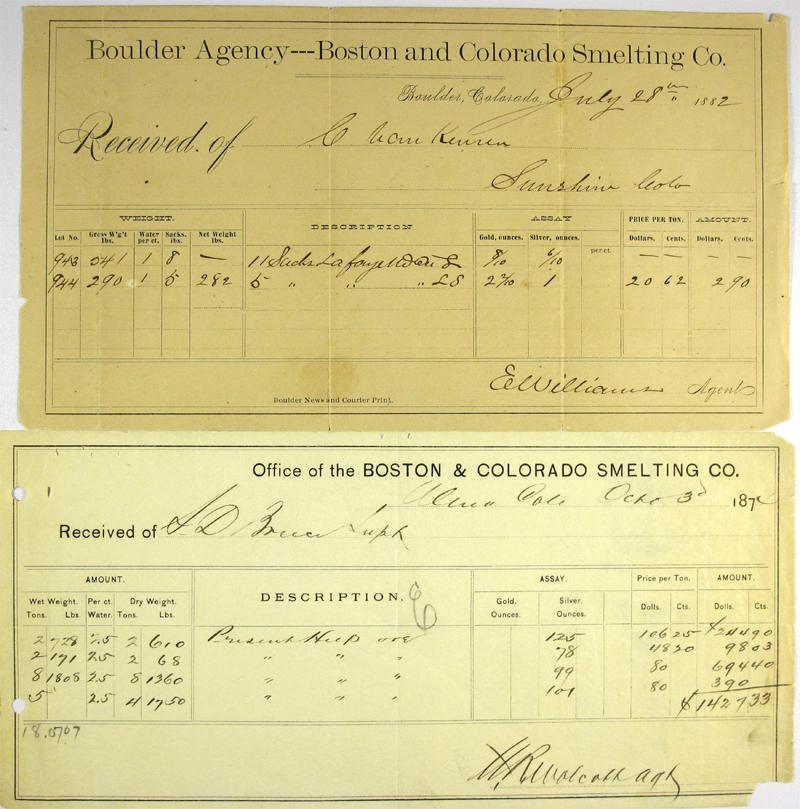 Boulder Agency---Boston and Colorado Smelting Co.
Boulder, Colorado, July 28th 1882
Received of C Van
Sunshine Colo
WEIGHT. DESCRIPTION ASSAY PRICE PER TON. AMOUNT.
Lot No. Gross W'g't lbs. Water per ct. Sacks. lbs. Net Weight lbs. Gold, ounces. Silver, ounces. per ct. Dollars. Cents. Dollars, Cents.
943 541 1 8 — 11 Sacks Lafayette 8/10 6/10 — — — —
944 290 1 5 282 5 " " " LS 2 1 20 62 2 90
E Williams Agent
Boulder News and Courier Print.
Office of the BOSTON & COLORADO SMELTING CO.
Alma Colo Octo 3d 187
Received of D Bruce Supt
AMOUNT. DESCRIPTION. ASSAY. Price per Ton. AMOUNT.
Wet Weight. Per ct. Dry Weight. Gold. Silver.
Tons. Lbs. Water. Tons. Lbs. Ounces. Ounces. Dolls. Cts. Dolls. Cts.
2 728 2.5 2 610 Present Help ore 125 106 25 $244 90
2 171 2.5 2 68 " " " 78 48 20 98 03
8 1808 2.5 8 1360 " " " 99 80 694 40
5 2.5 4 1750 " " " 101 80 390
$1427 33
18.0707
H.R. Wolcott agt